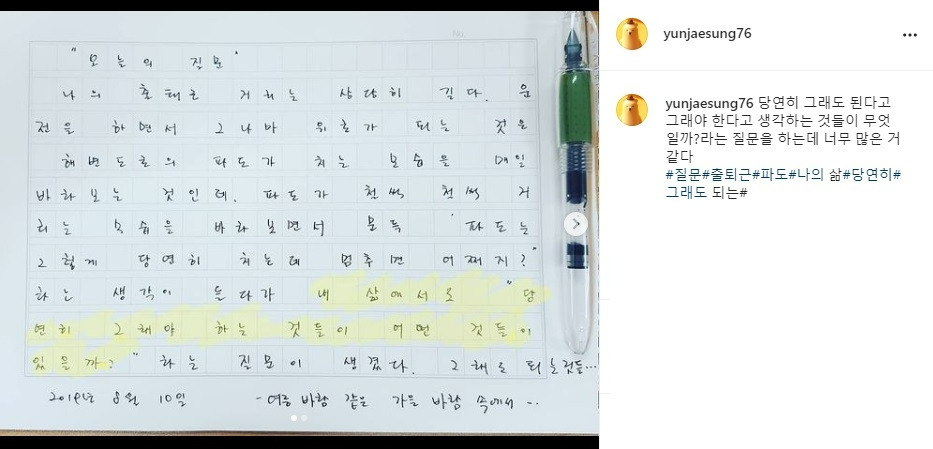 No.
"오늘의 질문"
나의 출퇴근 거리는 상당히 길다. 운
전을 하면서 그나마 위로가 되는 것은
해변도로의 파도가 치는 모습을 매일
바라보는 것인데, 파도가 철썩 철썩 거
리는 모습을 바라보면서 문득 '파도는
그렇게 당연히 치는데 멈추면 어쩌지?'
하는 생각이 들다가 내 삶에서도 "당
연히 그래야 하는 것들이 어떤 것들이
있을까?" 하는 질문이 생겼다. 그래도 되는 것들...
2019년 8월 10일 - 여름 바람 같은 가을 바람 속에서 ..
yunjaesung76
yunjaesung76 당연히 그래도 된다고
그래야 한다고 생각하는 것들이 무엇
일까?라는 질문을 하는데 너무 많은 거
같다
#질문#출퇴근#파도#나의 삶#당연히#
그래도 되는#